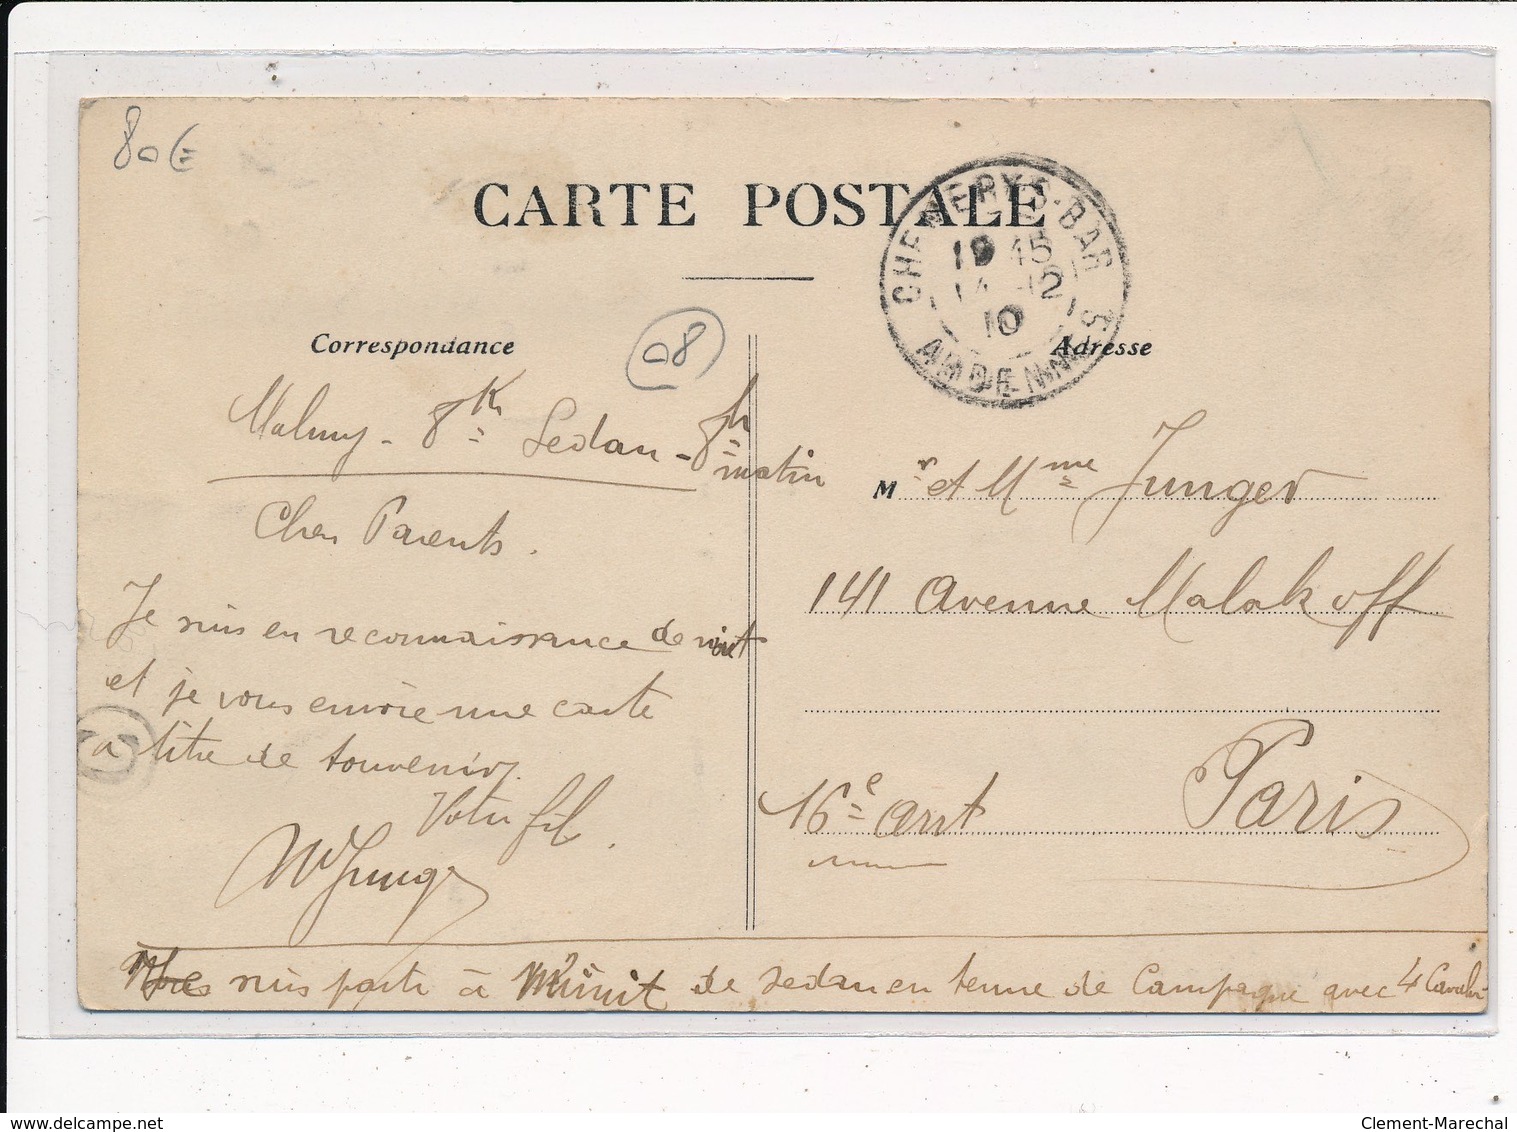 80€
CARTE POSTALE
CHEMERY-S-BAR
19 45
14 -12
10
ARDENNES
Correspondance
Adresse
08
Malmy - 8 K Sedan - 8 h
matin
Cher Parents.
Je suis en reconnaissance de nuit
et je vous envoie une carte
à titre de souvenir.
Votre fil.
Junger
Mr et Mme Junger
141 Avenue Malakoff
16e arrt Paris
suis parti à Minuit de Sedan en tenue de Campagne avec 4 Cavaliers
Clement-Marechal